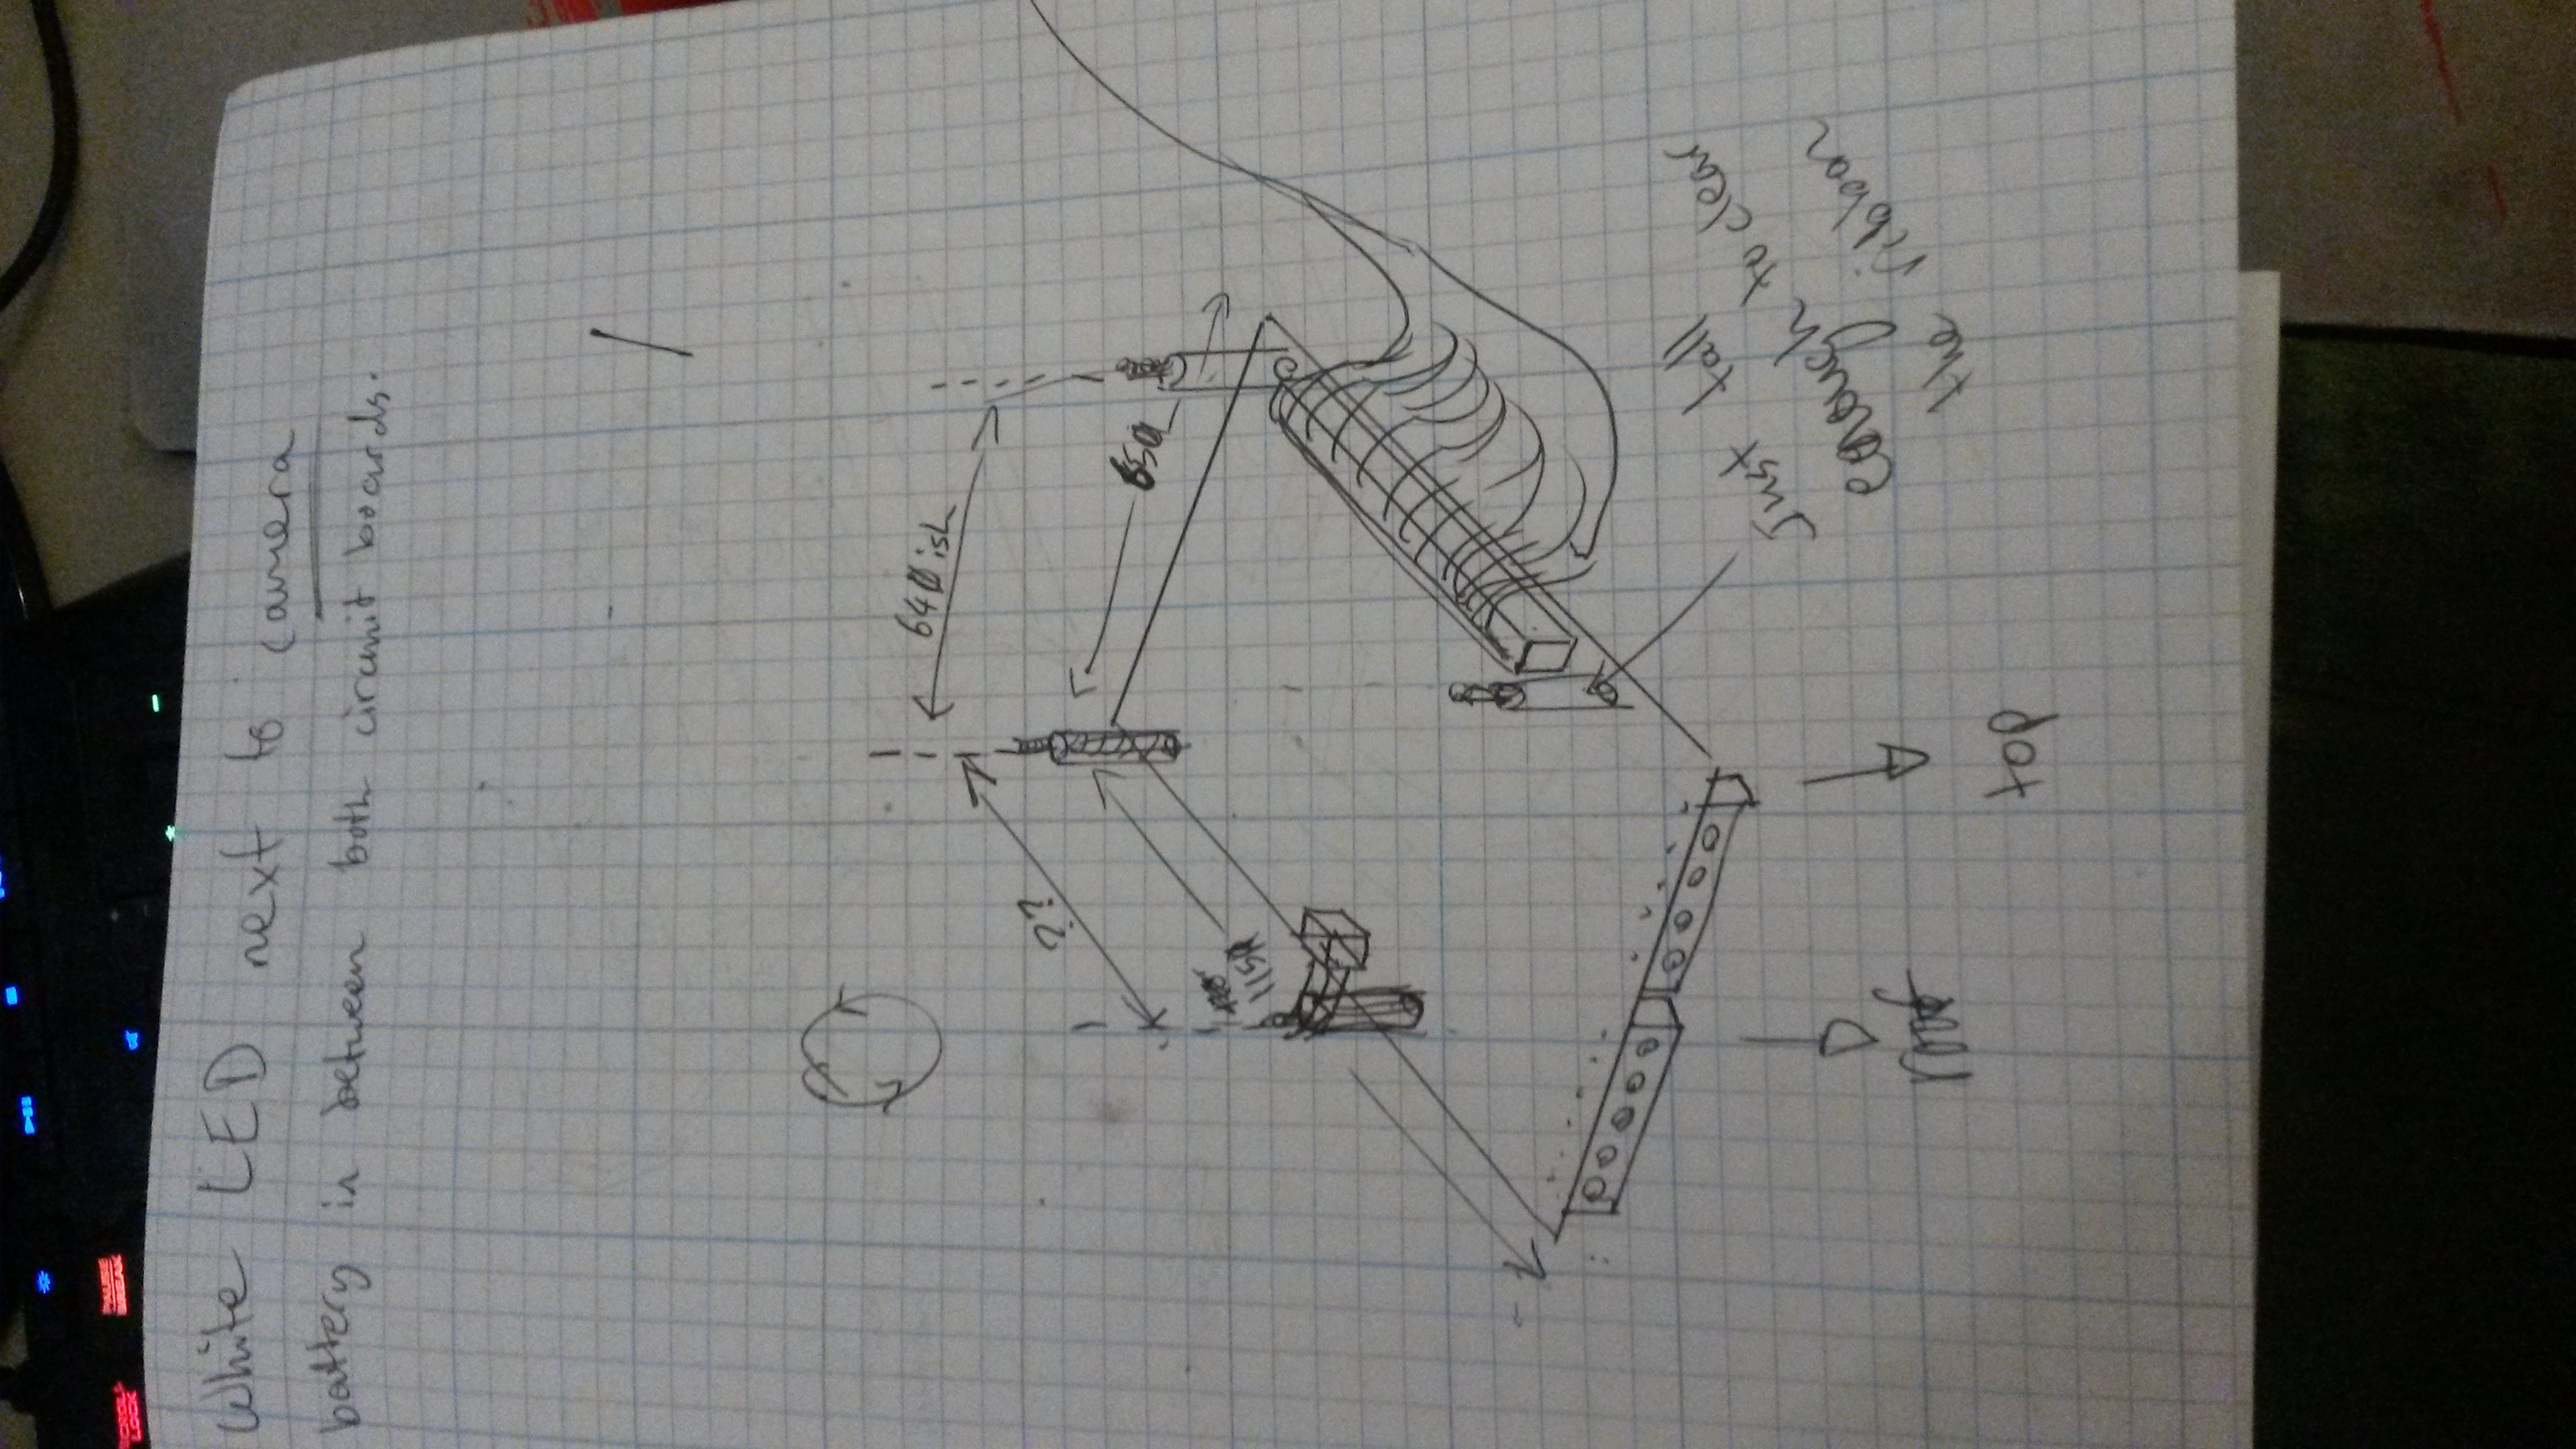 SCROLL LOCK
PAUSE BREAK
White LED next to camera
battery in between both circuit boards.
640 ish
??
650
1150
Just tall
enough to clear
the ribbon
roof
top